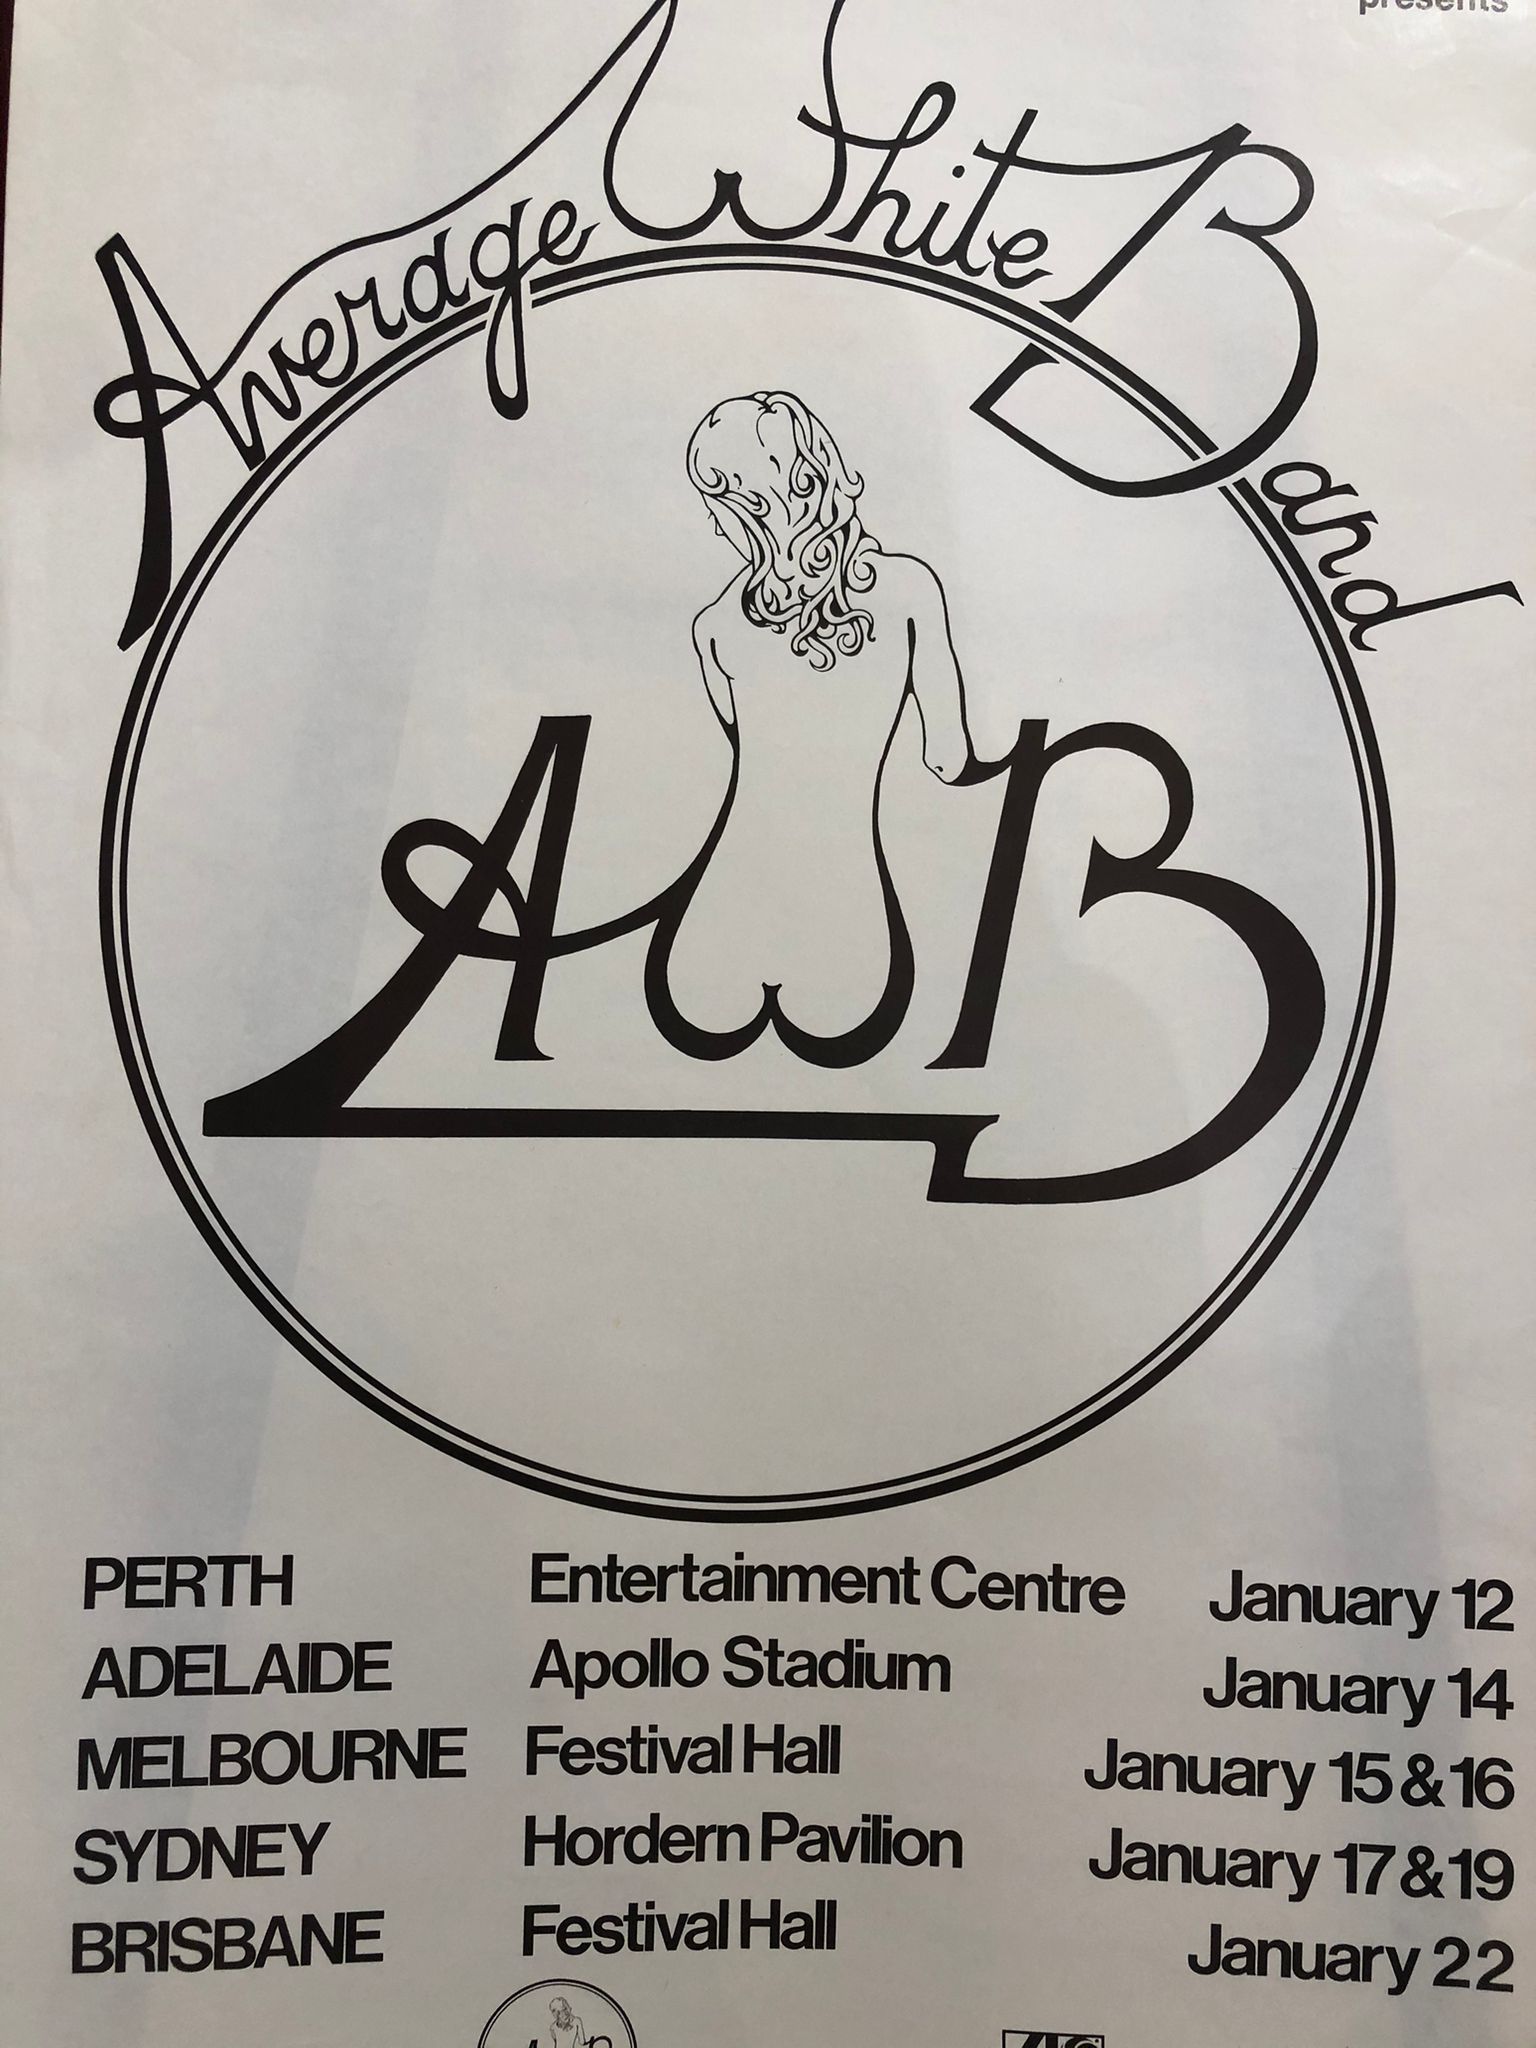 presents
Average White Band
AWB
PERTH Entertainment Centre January 12
ADELAIDE Apollo Stadium January 14
MELBOURNE Festival Hall January 15 & 16
SYDNEY Hordern Pavilion January 17 & 19
BRISBANE Festival Hall January 22